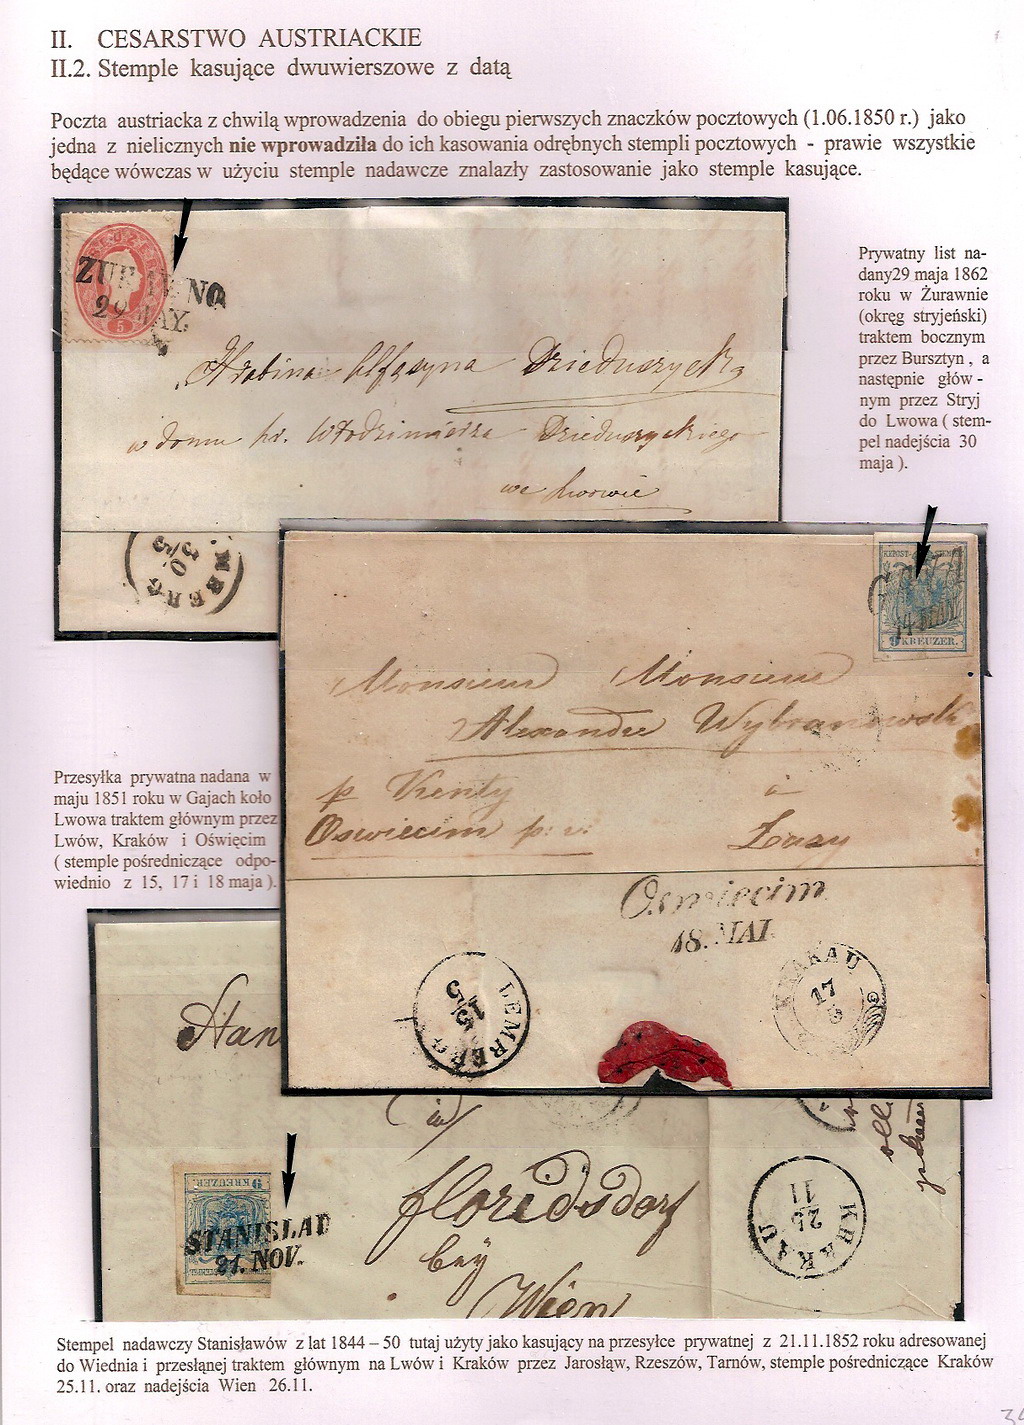 II. CESARSTWO AUSTRIACKIE
II.2. Stemple kasujące dwuwierszowe z datą
Poczta austriacka z chwilą wprowadzenia do obiegu pierwszych znaczków pocztowych (1.06.1850 r.) jako
jedna z nielicznych nie wprowadziła do ich kasowania odrębnych stempli pocztowych - prawie wszystkie
będące wówczas w użyciu stemple nadawcze znalazły zastosowanie jako stemple kasujące.
29 MAY.
5
Hrabina Alfonsyna Dzieduszycka
w domu hr. Włodzimierza Dzieduszyckiego
we Lwowie
30/5
Prywatny list na-
dany29 maja 1862
roku w Żurawnie
(okręg stryjeński)
traktem bocznym
przez Bursztyn , a
następnie głów -
nym przez Stryj
do Lwowa ( stem-
pel nadejścia 30
maja ).
9 KREUZER.
Monsieur Monsieur
Alexandre Wybranowski
p Kenty à
Oswiecim p: v: Łazy
Oswiecim
18. MAI.
LEMBERG
15 5
KRAKAU
17
5
Przesyłka prywatna nadana w
maju 1851 roku w Gajach koło
Lwowa traktem głównym przez
Lwów, Kraków i Oświęcim
( stemple pośredniczące odpo-
wiednio z 15, 17 i 18 maja ).
Stan
in
Floridsdorf
bey
Wien
9 KREUZER.
STANISLAU
21. NOV.
KRAKAU
25
11
Stempel nadawczy Stanisławów z lat 1844 – 50 tutaj użyty jako kasujący na przesyłce prywatnej z 21.11.1852 roku adresowanej
do Wiednia i przesłąnej traktem głównym na Lwów i Kraków przez Jarosłąw, Rzeszów, Tarnów, stemple pośredniczące Kraków
25.11. oraz nadejścia Wien 26.11.